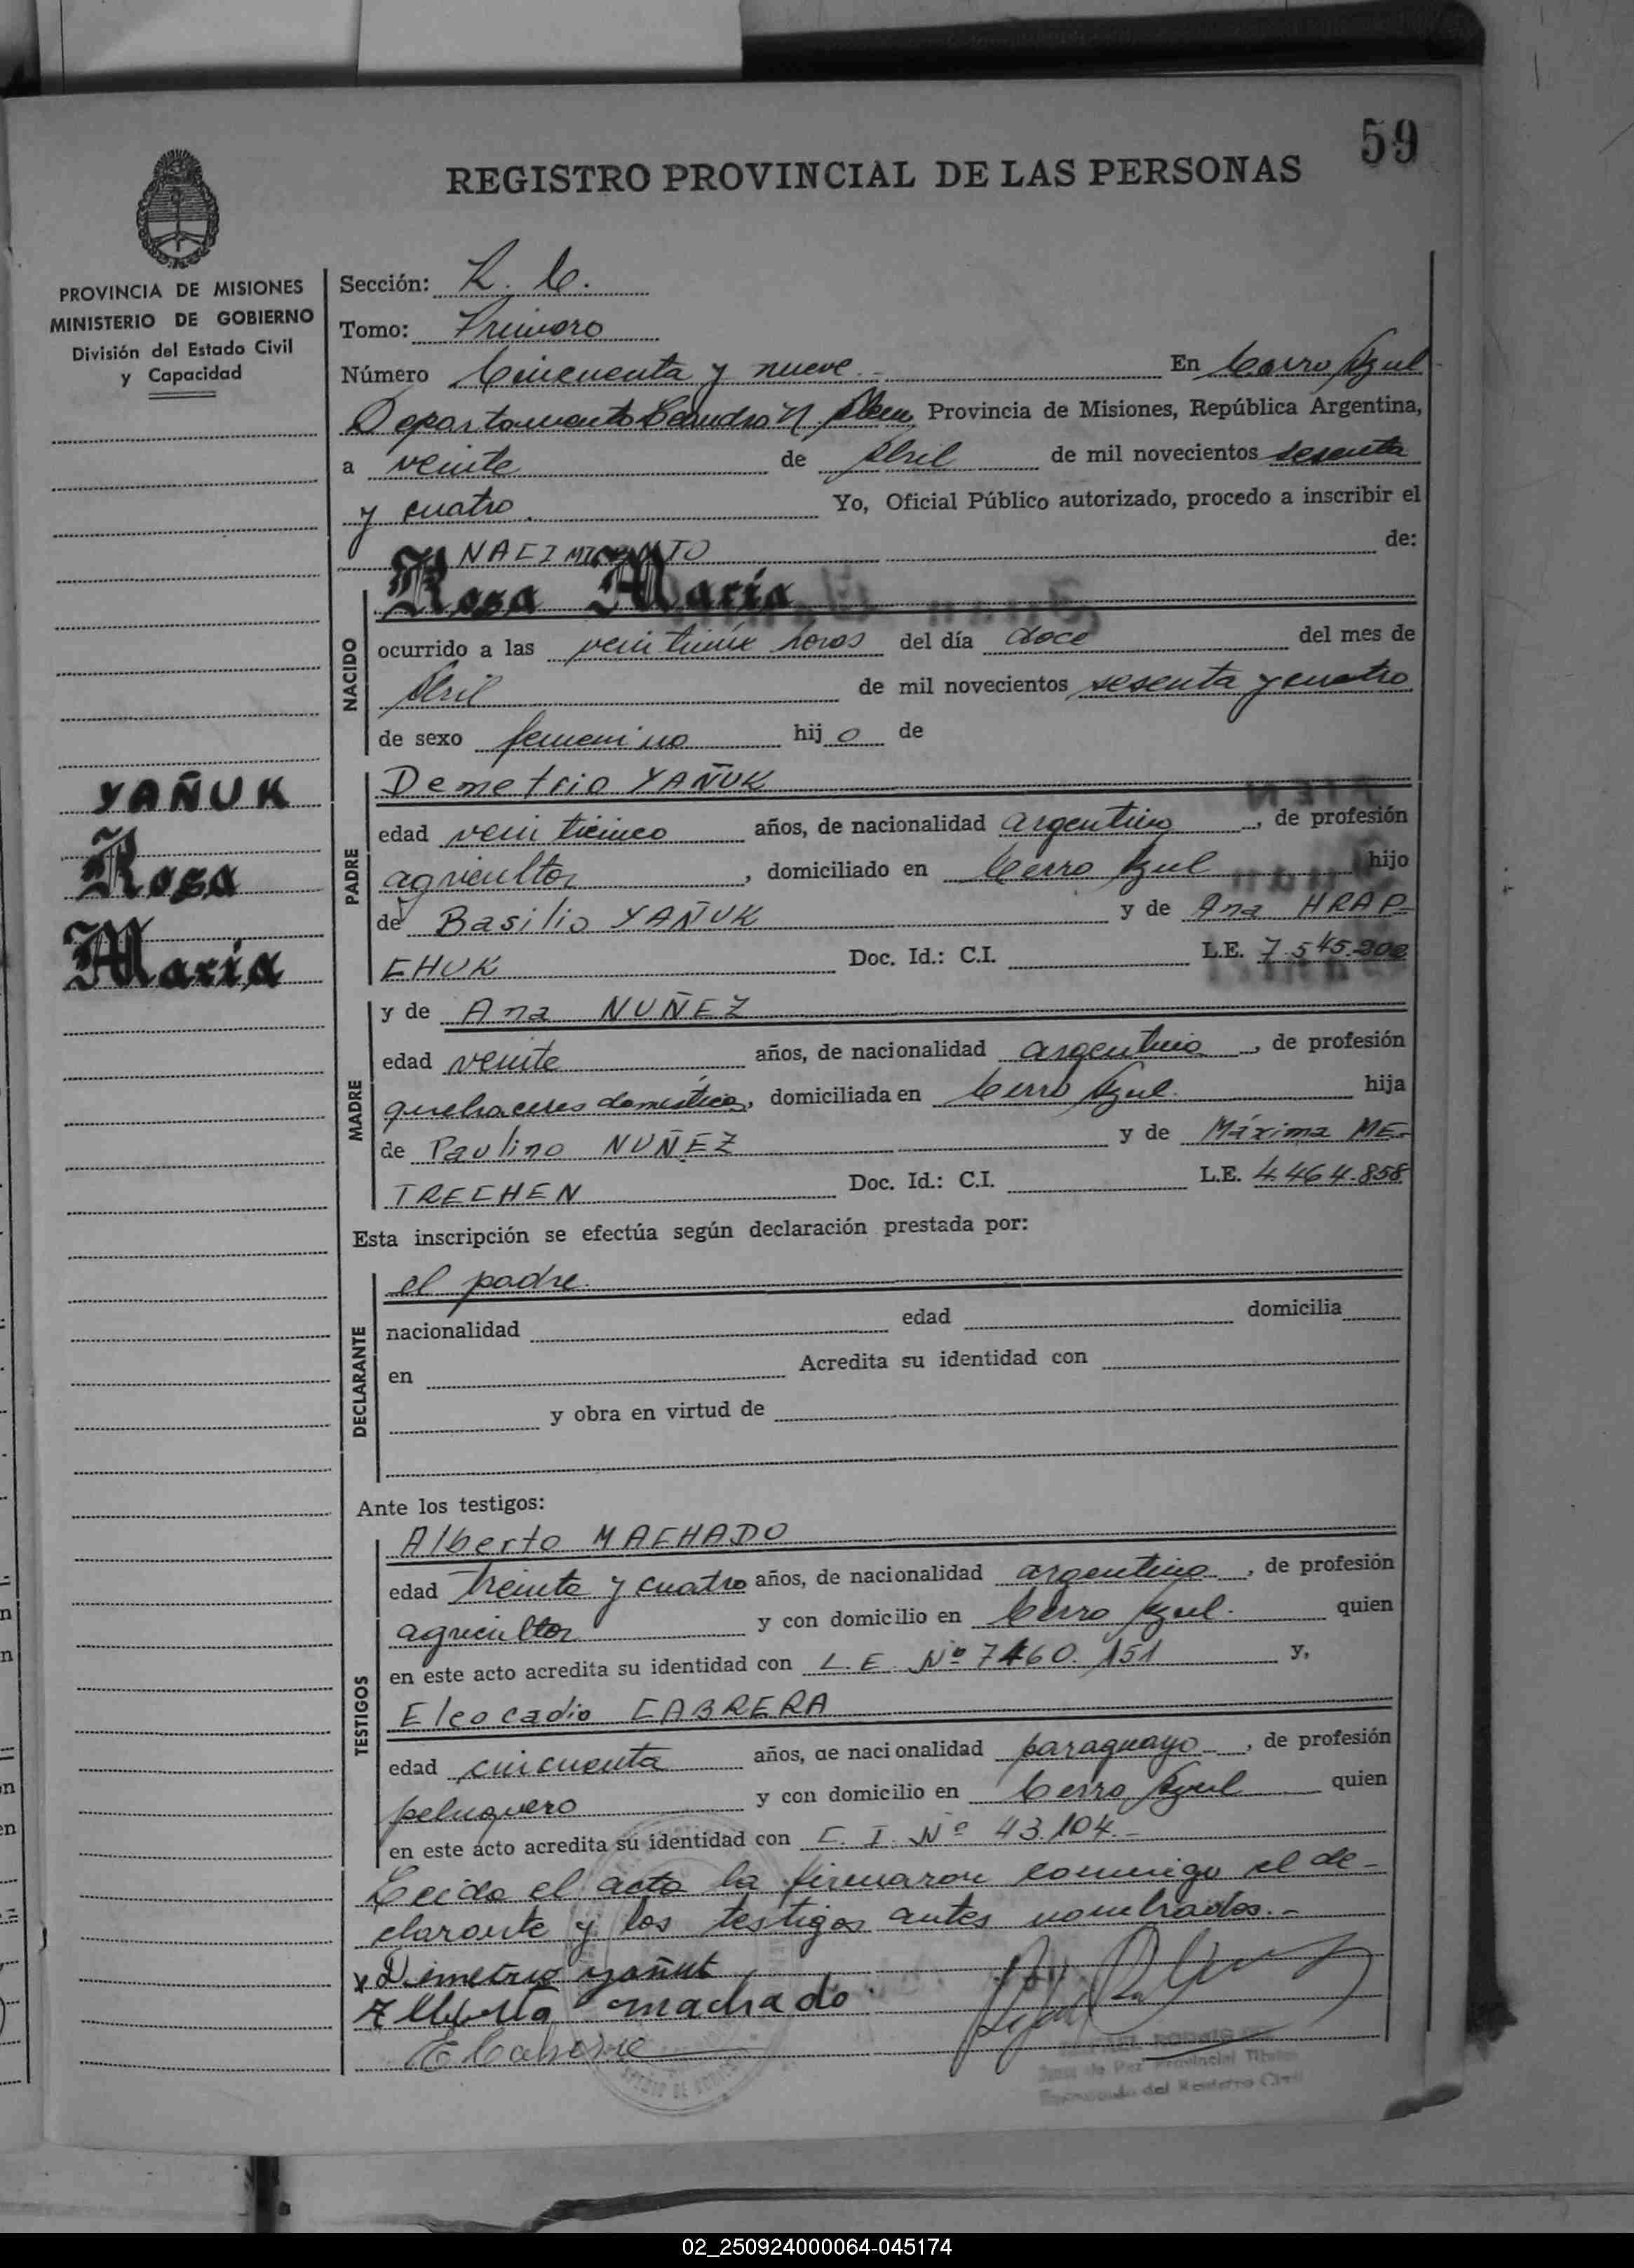 59
REGISTRO PROVINCIAL DE LAS PERSONAS
PROVINCIA DE MISIONES
MINISTERIO DE GOBIERNO
División del Estado Civil
y Capacidad
YAÑUK
Rosa
María
Sección: R. C.
Tomo: Primero
Número Cincuenta y nueve.- En Cerro Azul
Departamento Leandro N Alem, Provincia de Misiones, República Argentina,
a veinte de Abril de mil novecientos sesenta
y cuatro. Yo, Oficial Público autorizado, procedo a inscribir el
NACIMIENTO de:
NACIDO
Rosa María
ocurrido a las horas del día doce del mes de
Abril de mil novecientos sesenta y cuatro
de sexo femenino hijo de
PADRE
Demetrio YAÑUK
edad veinticinco años, de nacionalidad argentino, de profesión
agricultor, domiciliado en Cerro Azul hijo
de Basilio YAÑUK y de Ana HRAP-
CHUK Doc. Id.: C.I. L.E. 7.545.202
MADRE
y de Ana NUÑEZ
edad veinte años, de nacionalidad argentina, de profesión
quehaceres domésticos, domiciliada en Cerro Azul. hija
de Paulino NUÑEZ y de Máxima ME-
TRECHEN Doc. Id.: C.I. L.E. 4.464.858
Esta inscripción se efectúa según declaración prestada por:
DECLARANTE
el padre.
nacionalidad edad domicilia
en Acredita su identidad con
y obra en virtud de
Ante los testigos:
TESTIGOS
Alberto MACHADO
edad treinta y cuatro años, de nacionalidad argentino, de profesión
agricultor y con domicilio en Cerro Azul. quien
en este acto acredita su identidad con L.E. Nº 7460.151 y,
Eleocadio CABRERA
edad cincuenta años, de nacionalidad paraguayo, de profesión
peluquero y con domicilio en Cerro Azul quien
en este acto acredita su identidad con C. I. Nº 43.104.-
Leida el acta la firmaron conmigo el de-
clarante y los testigos antes nombrados.-
x Demetrio yañuk
Alberto machado
E Cabrera
Juez de Paz Provincial Titular
Encargado del Registro Civil
02_250924000064-045174